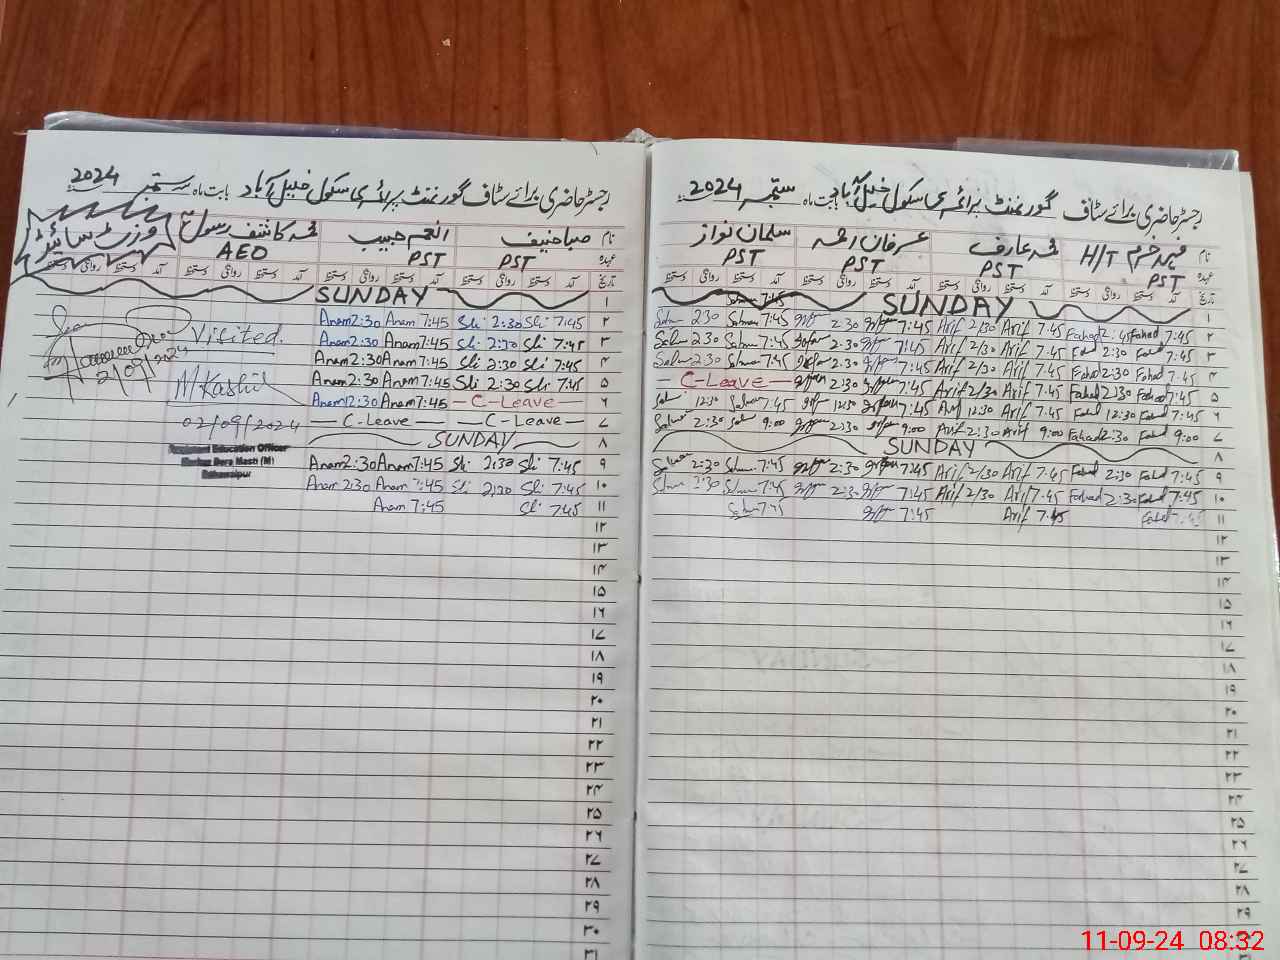 رجسٹر حاضری برائے سٹاف گورنمنٹ پرائمری سکول خلیل آباد بابت ماہ ستمبر 2024
نام فہد خرم H/T محمد عارف عرفان احمد سلمان نواز
عہدہ PST PST PST PST
تاریخ آمد دستخط روانگی دستخط آمد دستخط روانگی دستخط آمد دستخط روانگی دستخط آمد دستخط روانگی دستخط
۱ SUNDAY Salman 7:45
۲ Fahad 7:45 Fahad 2:45 Arif 7:45 Arif 2/30 7:45 2:30 Salman 7:45 2:30
۳ Fahad 7:45 2:30 Arif 7:45 Arif 2/30 7:45 2:30 Salman 7:45 2:30
۴ Fahad 7:45 2:30 Arif 7:45 Arif 2/30 7:45 2:30 Salman 7:45 2:30
۵ Fahad 7:45 Fahad 2:30 Arif 7:45 Arif 2/30 7:45 2:30 C-Leave
۶ Fahad 7:45 12:30 Arif 7:45 12:30 7:45 12:30 Salman 7:45 12:30
۷ Fahad 9:00 Fahad 2:30 Arif 9:00 Arif 2:30 9:00 2:30 9:00 2:30
۸ SUNDAY
۹ Fahad 7:45 2:30 Arif 7:45 Arif 2/30 7:45 2:30 Salman 7:45 2:30
۱۰ Fahad 7:45 Fahad 2:30 Arif 7:45 Arif 2/30 7:45 2:30 Salman 7:45 2:30
۱۱ Fahad 7:45 Arif 7:45 7:45 Salman 7:45
۱۲
۱۳
۱۴
۱۵
۱۶
۱۷
۱۸
۱۹
۲۰
۲۱
۲۲
۲۳
۲۴
۲۵
۲۶
۲۷
۲۸
۲۹
۳۰
رجسٹر حاضری برائے سٹاف گورنمنٹ پرائمری سکول خلیل آباد بابت ماہ ستمبر 2024
نام صبا حنیف انعم حبیب محمد کاشف رسول وزٹ سائٹ
عہدہ PST PST AEO
تاریخ آمد دستخط روانگی دستخط آمد دستخط روانگی دستخط آمد دستخط روانگی دستخط
۱ SUNDAY
۲ 7:45 2:30 Anam 7:45 Anam 2:30
۳ 7:45 2:30 Anam 7:45 Anam 2:30
۴ 7:45 2:30 Anam 7:45 Anam 2:30
۵ 7:45 2:30 Anam 7:45 Anam 2:30
۶ C-Leave Anam 7:45 Anam 12:30
۷ C-Leave C-Leave
۸ SUNDAY
۹ 7:45 2:30 Anam 7:45 Anam 2:30
۱۰ 7:45 2:30 Anam 7:45 Anam 2:30
۱۱ 7:45 Anam 7:45
۱۲
۱۳
۱۴
۱۵
۱۶
۱۷
۱۸
۱۹
۲۰
۲۱
۲۲
۲۳
۲۴
۲۵
۲۶
۲۷
۲۸
۲۹
۳۰
۳۱
Visited.
M Kashif
02/09/2024
Assistant Education Officer
Markaz Dera Masti (M)
Bahawalpur
11-09-24 08:32